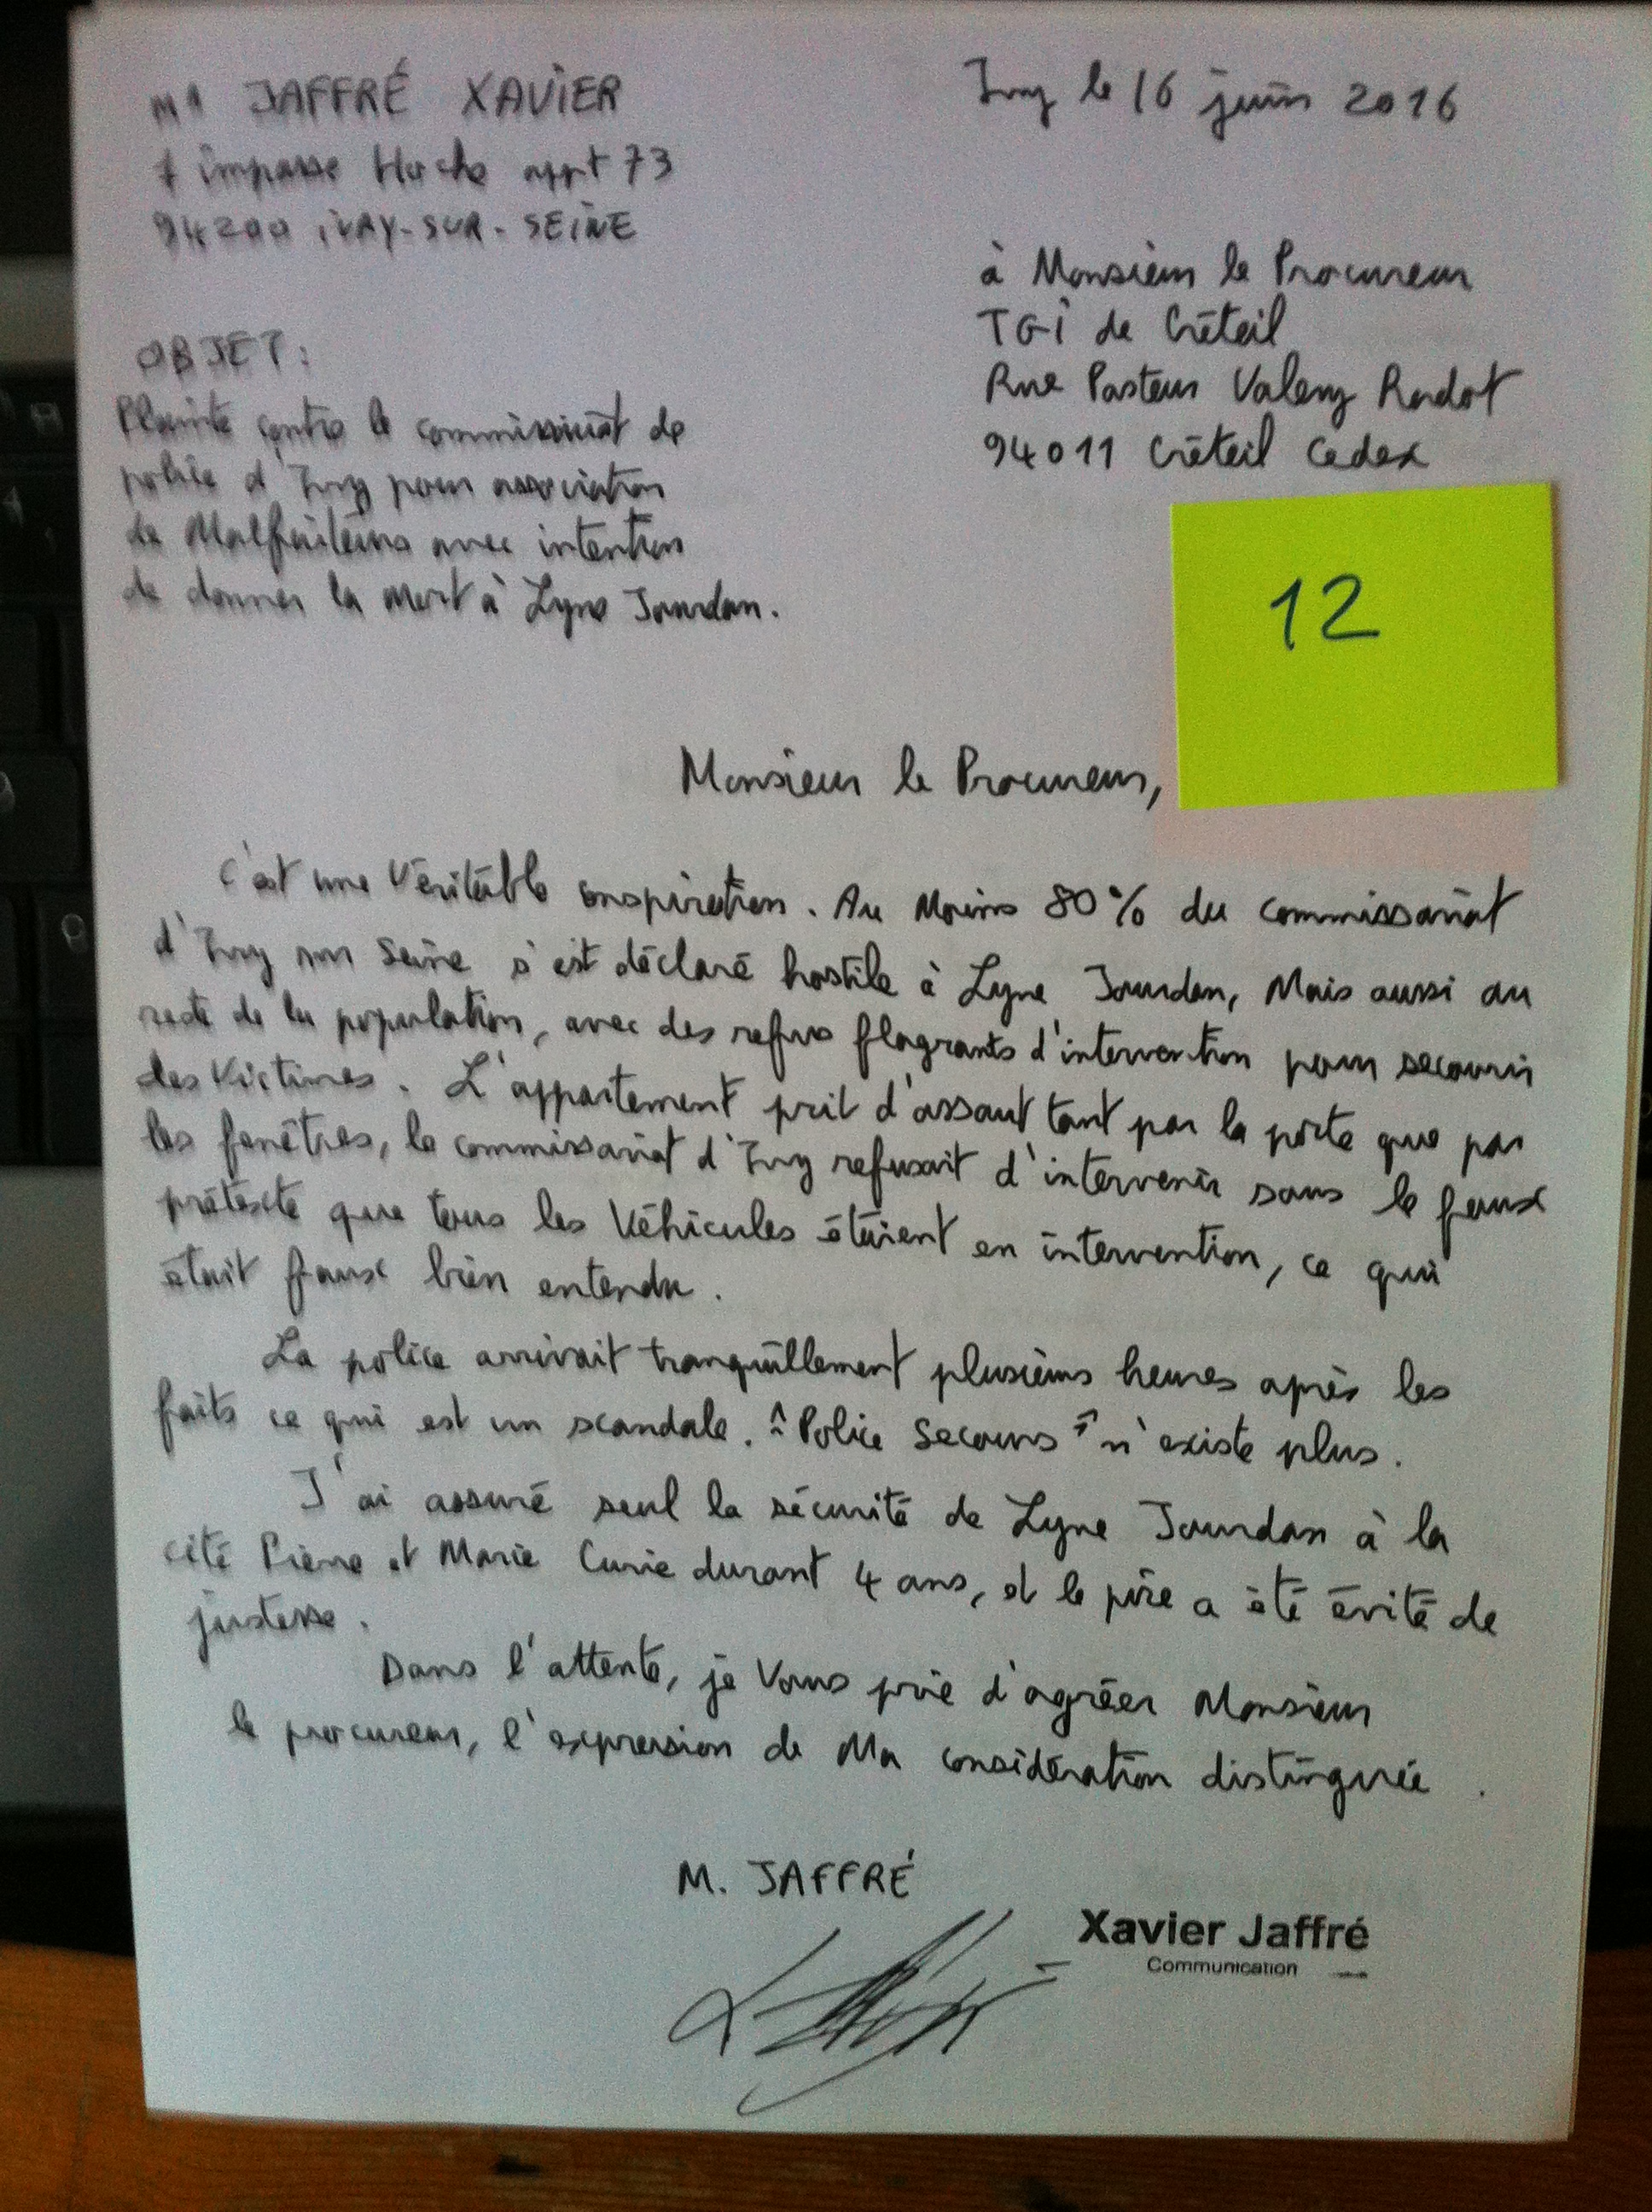 Mr JAFFRÉ XAVIER
7 impasse Hoche appt 73
94200 IVRY-SUR-SEINE
Ivry le 16 juin 2016
à Monsieur le Procureur
TGI de Créteil
Rue Pasteur Valery Radot
94011 Créteil Cedex
OBJET:
Plainte contre le commissariat de
police d'Ivry pour association
de Malfaiteurs avec intention
de donner la mort à Lyne Jourdan.
12
Monsieur le Procureur,
C'est une Véritable conspiration. Au Moins 80% du commissariat
d'Ivry sur Seine s'est déclaré hostile à Lyne Jourdan, Mais aussi au
reste de la population, avec des refus flagrants d'intervention pour secourir
des Victimes. L'appartement prit d'assaut tant par la porte que par
les fenêtres, le commissariat d'Ivry refusait d'intervenir sous le faux
prétexte que tous les Véhicules étaient en intervention, ce qui
était faux bien entendu.
La police arrivait tranquillement plusieurs heures après les
faits ce qui est un scandale. "Police Secours" n'existe plus.
J'ai assuré seul la sécurité de Lyne Jourdan à la
cité Pierre et Marie Curie durant 4 ans, et le pire a été évité de
justesse.
Dans l'attente, je Vous prie d'agréer Monsieur
le procureur, l'expression de Ma considération distinguée.
M. JAFFRÉ
Xavier Jaffré
Communication